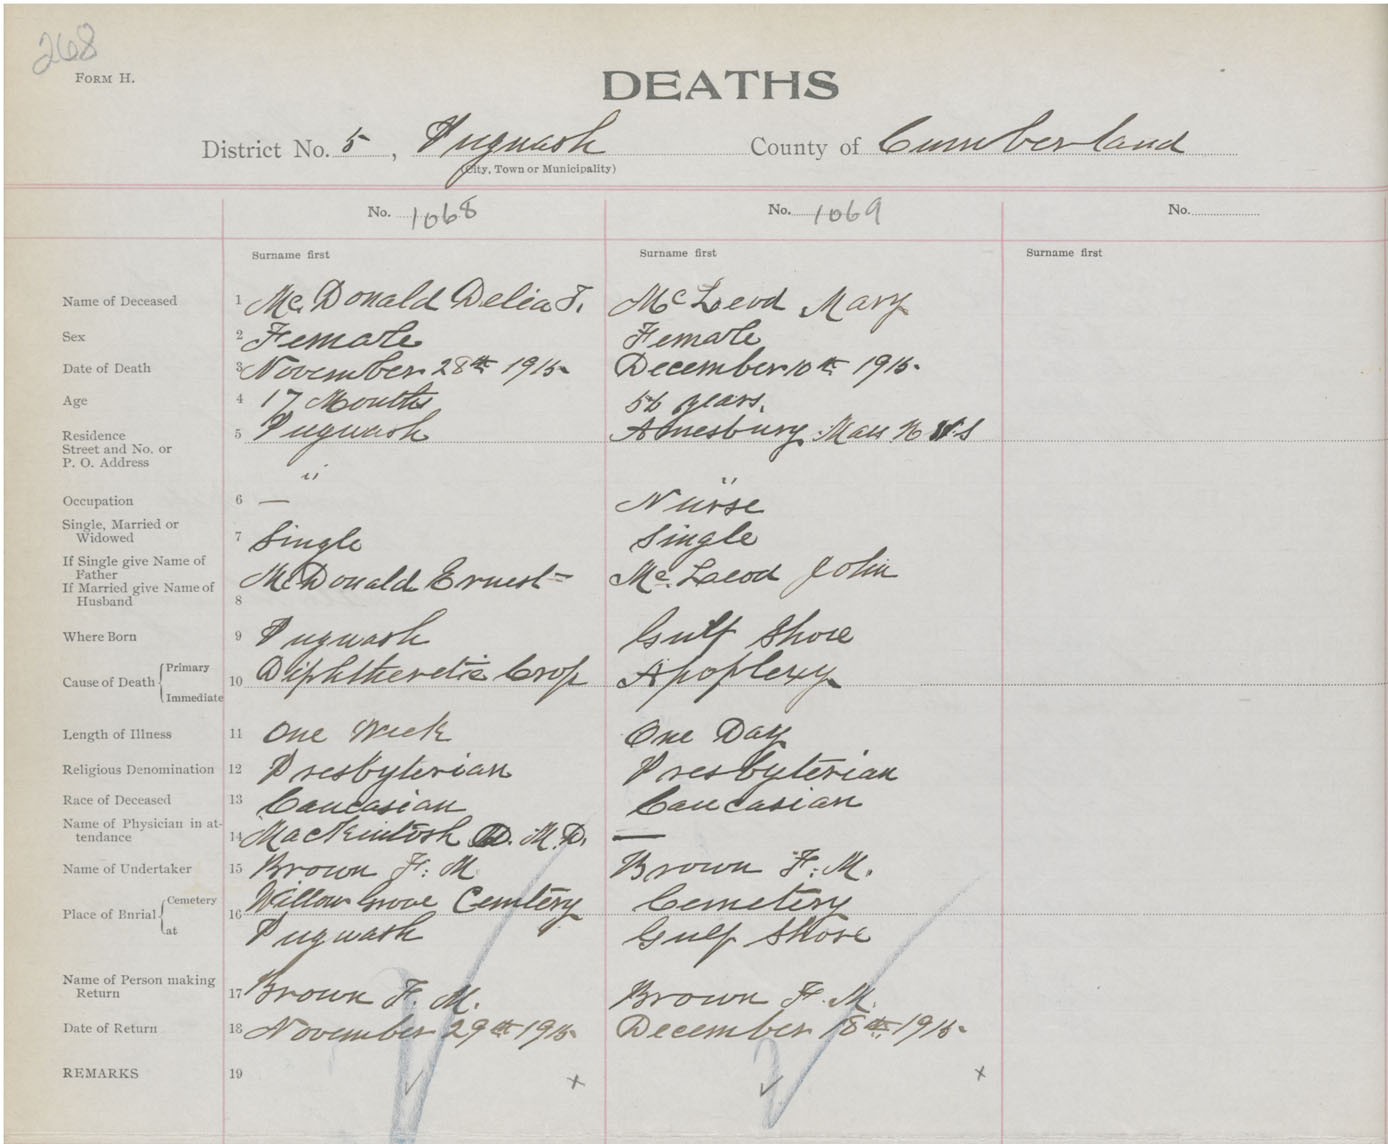 268
FORM H.
DEATHS
District No. 5, Pugwash County of Cumberland
(City, Town or Municipality)
No. 1068 No. 1069 No.
Surname first Surname first Surname first
Name of Deceased 1 Mc Donald Delia F. Mc Leod Mary
Sex 2 Female Female
Date of Death 3 November 28th 1915 December 10th 1915
Age 4 17 Months 56 years.
Residence 5 Pugwash Amesbury Mass
Street and No. or
P. O. Address " "
Occupation 6 — Nurse
Single, Married or
Widowed 7 Single Single
If Single give Name of
Father Mc Donald Ernest Mc Leod John
If Married give Name of
Husband 8
Where Born 9 Pugwash Gulf Shore
Cause of Death Primary 10 Diphtheretic Crop Apoplexy
Immediate
Length of Illness 11 One Week One Day
Religious Denomination 12 Presbyterian Presbyterian
Race of Deceased 13 Caucasian Caucasian
Name of Physician in at-
tendance 14 Mackintosh D. M.D. —
Name of Undertaker 15 Brown F. M Brown F. M.
Place of Burial Cemetery 16 Willow Grove Cemtery Cemetery
at Pugwash Gulf Shore
Name of Person making
Return 17 Brown F. M. Brown F. M.
Date of Return 18 November 29th 1915 December 18th 1915
REMARKS 19 ✓ x ✓ x